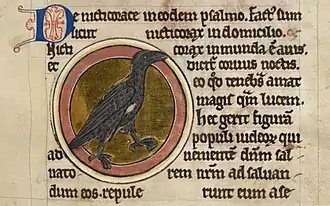 De nicticorace in eodem psalmo. Fact' sum
sicut nicticorax in domicilio.
Nicti corax inmunda ē auis.
et dicit̄ coruus noctis.
eo qd̓ tenebras amat
magis qm̄ lucem.
hec gerit figurā
populi iudeoꝝ qui
ad uenientē dn̄m sal
uato rem nr̄m ad saluan
dum eos. repule runt eum a se